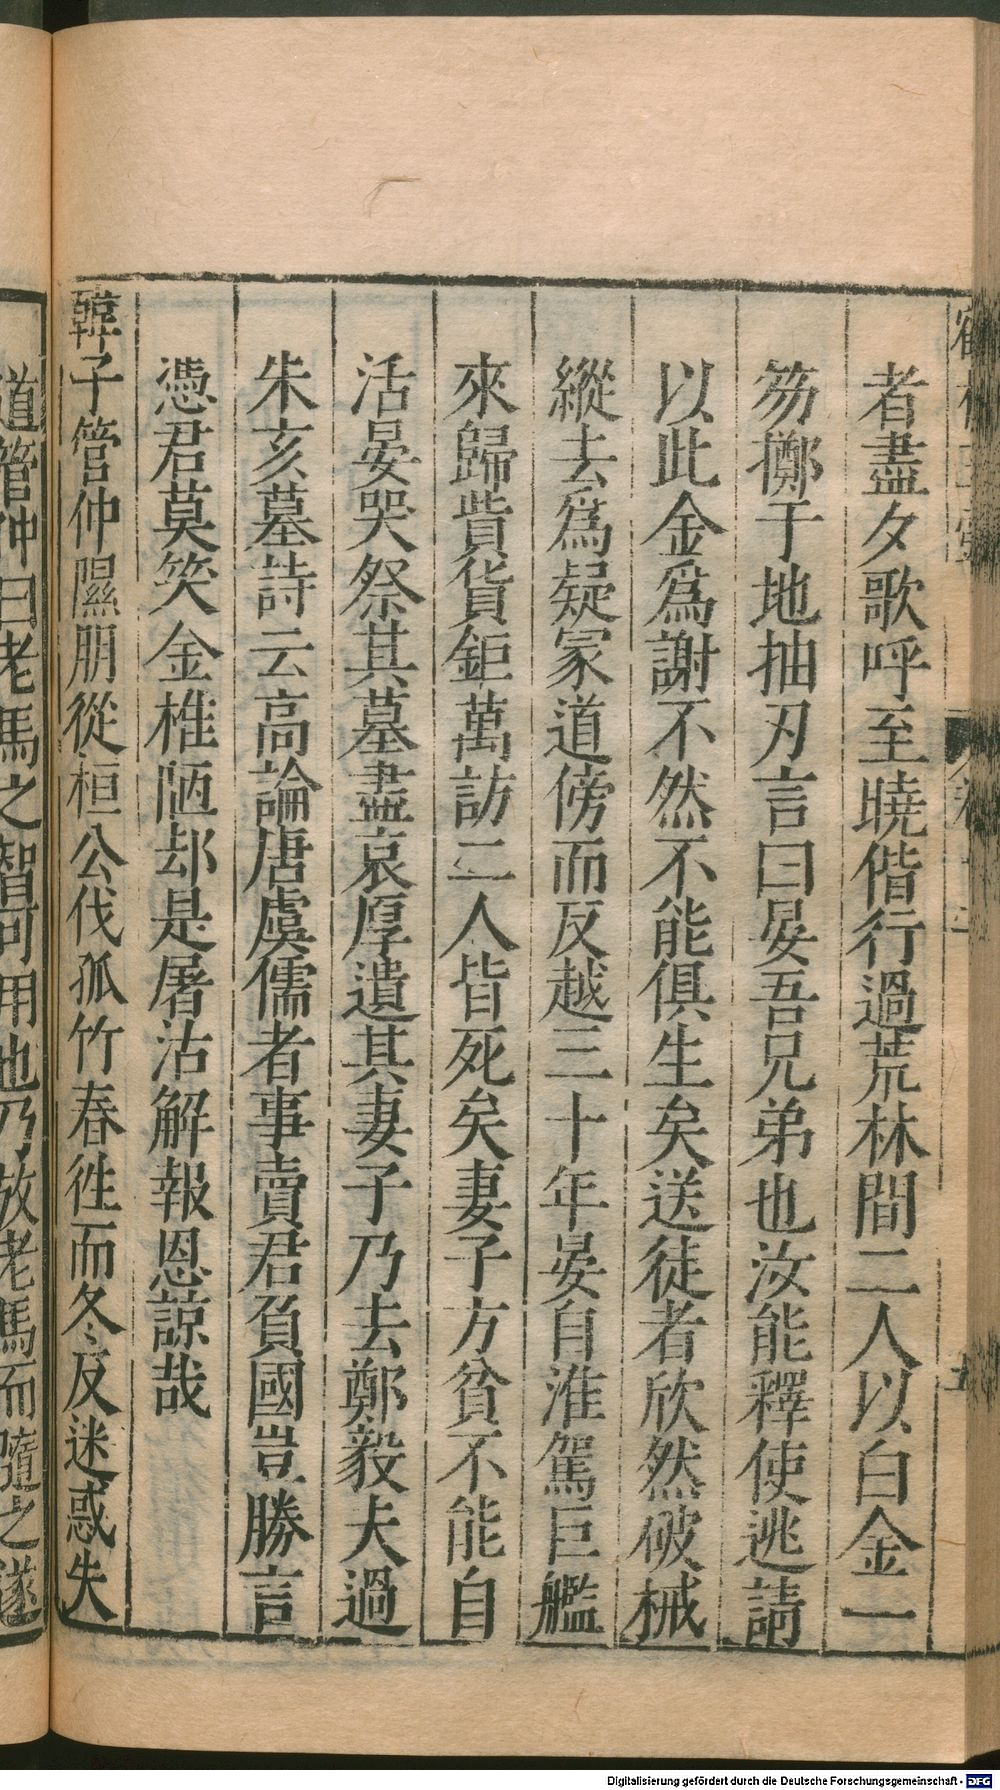 者盡夕歌呼至曉偕行過荒林間二人以白金一
笏擲于地抽刃言曰晏吾兄弟也汝能釋使逃請
以此金爲謝不然不能俱生矣送徒者欣然破械
縱去爲疑冢道傍而反越三十年晏自淮駕巨艦
來歸貲貨鉅萬訪二人皆死矣妻子方貧不能自
活晏哭祭其墓盡哀厚遺其妻子乃去鄭毅夫過
朱亥墓詩云高論唐虞儒者事賣君負國豈勝言
憑君莫笑金椎陋却是屠沽解報恩諒哉
韓子管仲隰朋從桓公伐孤竹春徃而冬反迷惑失
道管仲曰老馬之智可用也乃放老馬而隨之遂
Digitalisierung gefördert durch die Deutsche Forschungsgemeinschaft - DFG